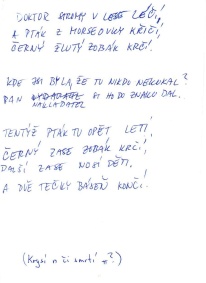 DOKTOR STROMY V LESE LÉČÍ,
A PTÁK Z MORSEOVKY KŘIČÍ,
ČERNÝ ŽLUTÝ ZOBÁK KRČÍ.
KDE JSI BYLA, ŽE TU NIKDO NEKOUKAL?
PAN VYDAVATEL SI HO DO ZNAKU DAL.
NAKLADATEL
TENTÝŽ PTÁK TU OPĚT LETÍ,
ČERNÝ ZASE ZOBÁK KRČÍ,
DALŠÍ ZASE NOSÍ DĚTI,
A DVĚ TEČKY BÁSEŇ KONČÍ.
(Krysí n či smrtí n?)